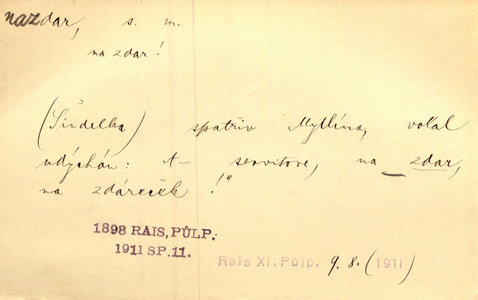 nazdar, s. m.
na zdar!
(Šindelka) spatřiv Myllína, volal
udýchán: A— servitore, na zdar,
na zdáreček!"
1898 RAIS, PŮLP.
1911 SP. 11.
Rais XI. Půlp. 9. 8. (1911)